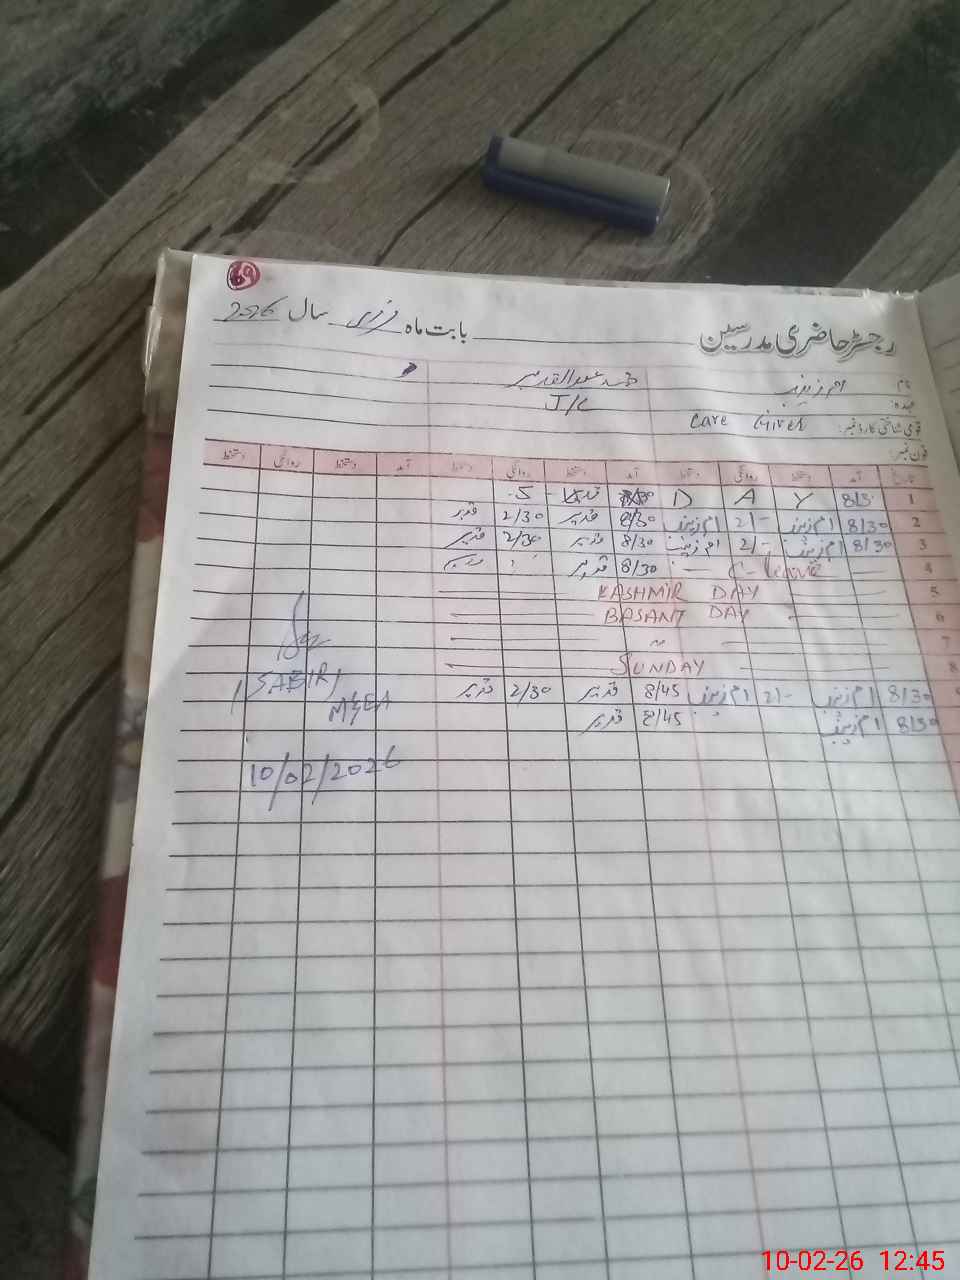 69
رجسٹر حاضری مدرسین بابت ماہ فروری سال 2026
نام ام زینب محمد عبدالقدیر
عہدہ: J/C
قومی شناختی کارڈ نمبر: Care Giver
فون نمبر:
تاریخ آمد دستخط روانگی دستخط آمد دستخط روانگی دستخط آمد دستخط روانگی دستخط
1 8/3 Y A D 8/30 S
2 8/30 ام زینب 2/- ام زینب 8/30 قدیر 2/30 قدیر
3 8/30 ام زینب 2/- ام زینب 8/30 قدیر 2/30 قدیر
4 C-leave 8/30 قدیر
5 KASHMIR DAY
6 BASANT DAY
7 "
8 SUNDAY
9 8/30 ام زینب 2/- ام زینب 8/45 قدیر 2/30 قدیر
8/30 ام زینب 8/45 قدیر
SABIR
MEA
10/02/2026
10-02-26 12:45